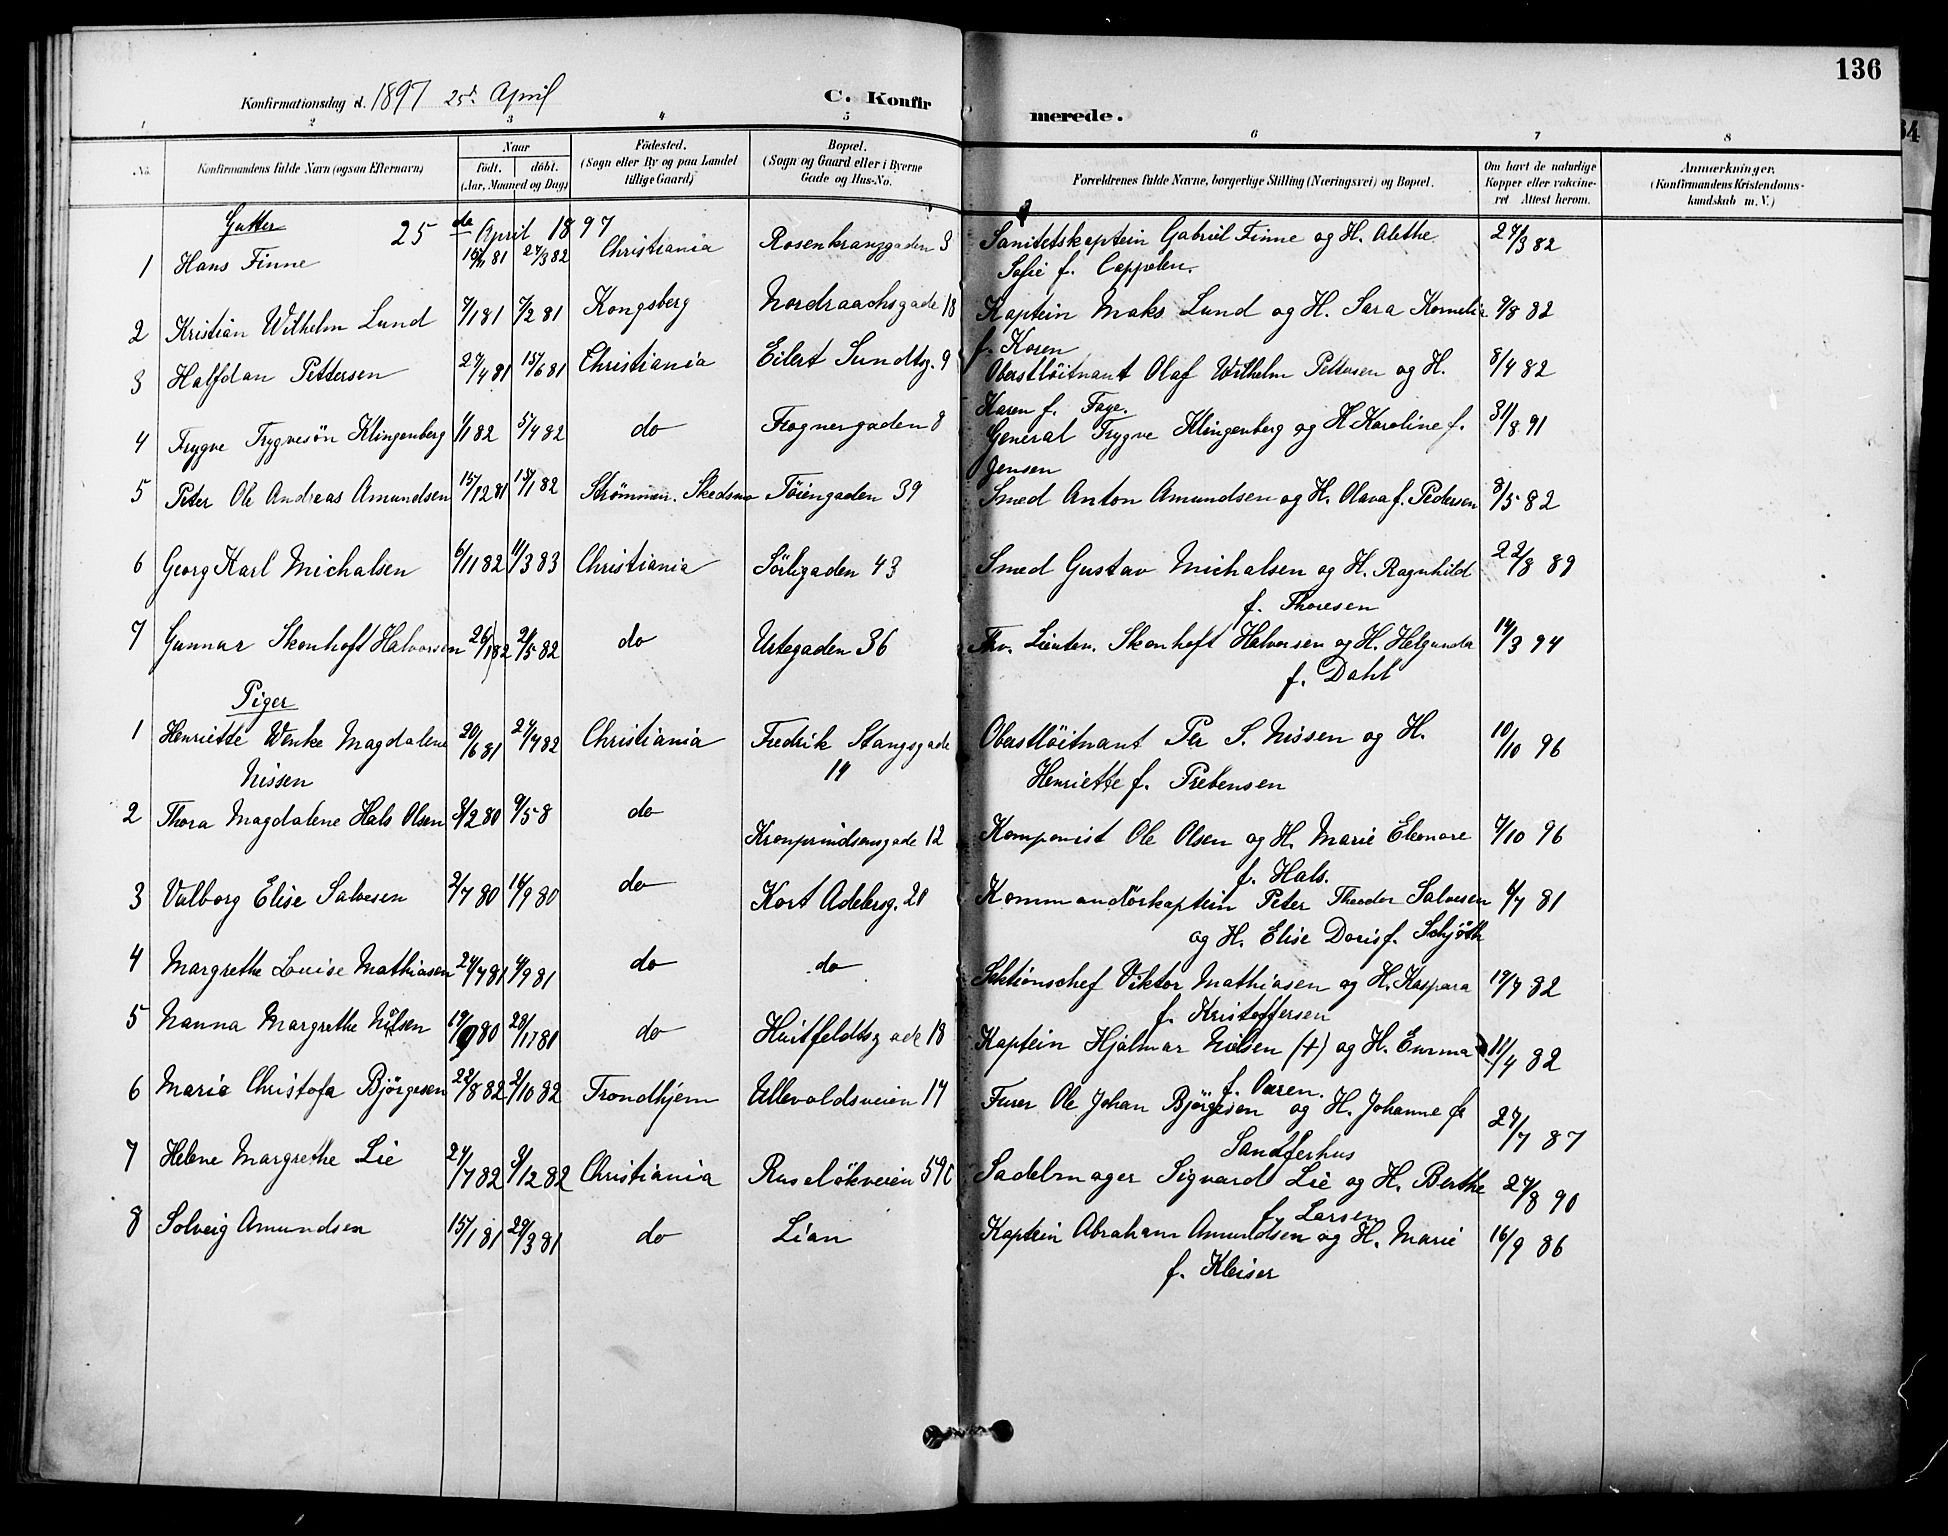 136
Konfirmationsdag d. 1897 25de April
C. Konfirmerede.
1 2 3 4 5 6 7 8
No.
Konfirmandens fulde Navn (ogsaa Efternavn)
Naar
födt. döbt.
(Aar, Maaned og Dag)
Födested.
(Sogn eller By og paa Landet
tillige Gaard)
Bopæl.
(Sogn og Gaard eller i Byerne
Gade og Hus-No.
Forældrenes fulde Navne, borgerlige Stilling (Næringsvei) og Bopæl.
Om havt de naturlige
Kopper eller vakcine-
ret Attest herom.
Anmærkninger.
(Konfirmandens Kristendoms-
kundskab m. V.)
Gutter 25de April 1897
1 Hans Finne 81 27/3 82 Christiania Rosenkranzgaden 3 Sanitetskaptein Gabriel Finne og H. Alethe 27/3 82
Sofie f. Cappelen.
2 Kristian Wilhelm Lund 7/1 81 7/2 81 Kongsberg Nordraachsgade 18 Kaptein Maks Lund og H. Sara Kornelia 9/8 82
f. Koren
3 Halfdan Pettersen 27/4 81 15/6 81 Christiania Eilert Sundtsg. 9 Oberstlöitnant Olaf Wilhelm Pettersen og H. 8/4 82
Karen f. Faye.
4 Trygve Trygvesön Klingenberg 1/1 82 5/4 82 do Frognergaden 8 General Trygve Klingenberg og H Karoline f. 31/8 91
Jensen
5 Peter Ole Andreas Amundsen 15/12 81 15/1 82 Strömmen. Skedsmo Töiengaden 39 Smed Anton Amundsen og H. Olava f. Pedersen 8/5 82
6 Georg Karl Michalsen 6/11 82 11/3 83 Christiania Sörligaden 43 Smed Gustav Michalsen og H. Ragnhild 22/8 89
f. Thoresen
7 Gunnar Skonhoft Halvorsen 26/1 82 21/5 82 do Urtegaden 36 Lieuten. Skonhoft Halvorsen og H. Helgunda 14/3 94
f. Dahl
Piger
1 Henriette Wenke Magdalene 20/6 81 82 Christiania Fredrik Stangsgade Oberstlöitnant Per S. Nissen og H. 10/10 96
Nissen 14 Henriette f. Prebensen
2 Thora Magdalene Hals Olsen 3/2 80 9/5 8 do Kronprindsensgade 12 Komponist Ole Olsen og H. Marie Eleonore 7/10 96
f. Hals.
3 Valborg Elise Salvesen 2/7 80 14/9 80 do Kort Adelersg. 20 Kommandörkaptein Peter Theodor Salvesen 6/7 81
og H. Elise Doris f. Schjöth
4 Margrethe Louise Mathiasen 24/7 81 4/9 81 do do Sektionschef Viktor Mathiasen og H. Kaspara 82
f. Kristoffersen
5 Nanna Margrethe Nilsen 19/9 80 28/1 81 do Huitfeldtsgade 18 Kaptein Hjalmar Nilsen (+) og H. Emma 11/4 82
f. Aaren.
6 Marie Christofa Björgesen 22/8 82 2/10 82 Trondhjem Ullevoldsveien 14 Furer Ole Johan Björgesen og H. Johanne f. 27/7 87
Sandferhus
7 Helene Margrethe Lie 24/7 82 3/12 82 Christiania Ruselökveien 59c Sadelmager Sigvard Lie og H. Berthe 27/8 90
f. Larsen
8 Solveig Amundsen 15/1 81 29/3 81 do Lian Kaptein Abraham Amundsen og H. Marie 16/9 86
f. Kleiser